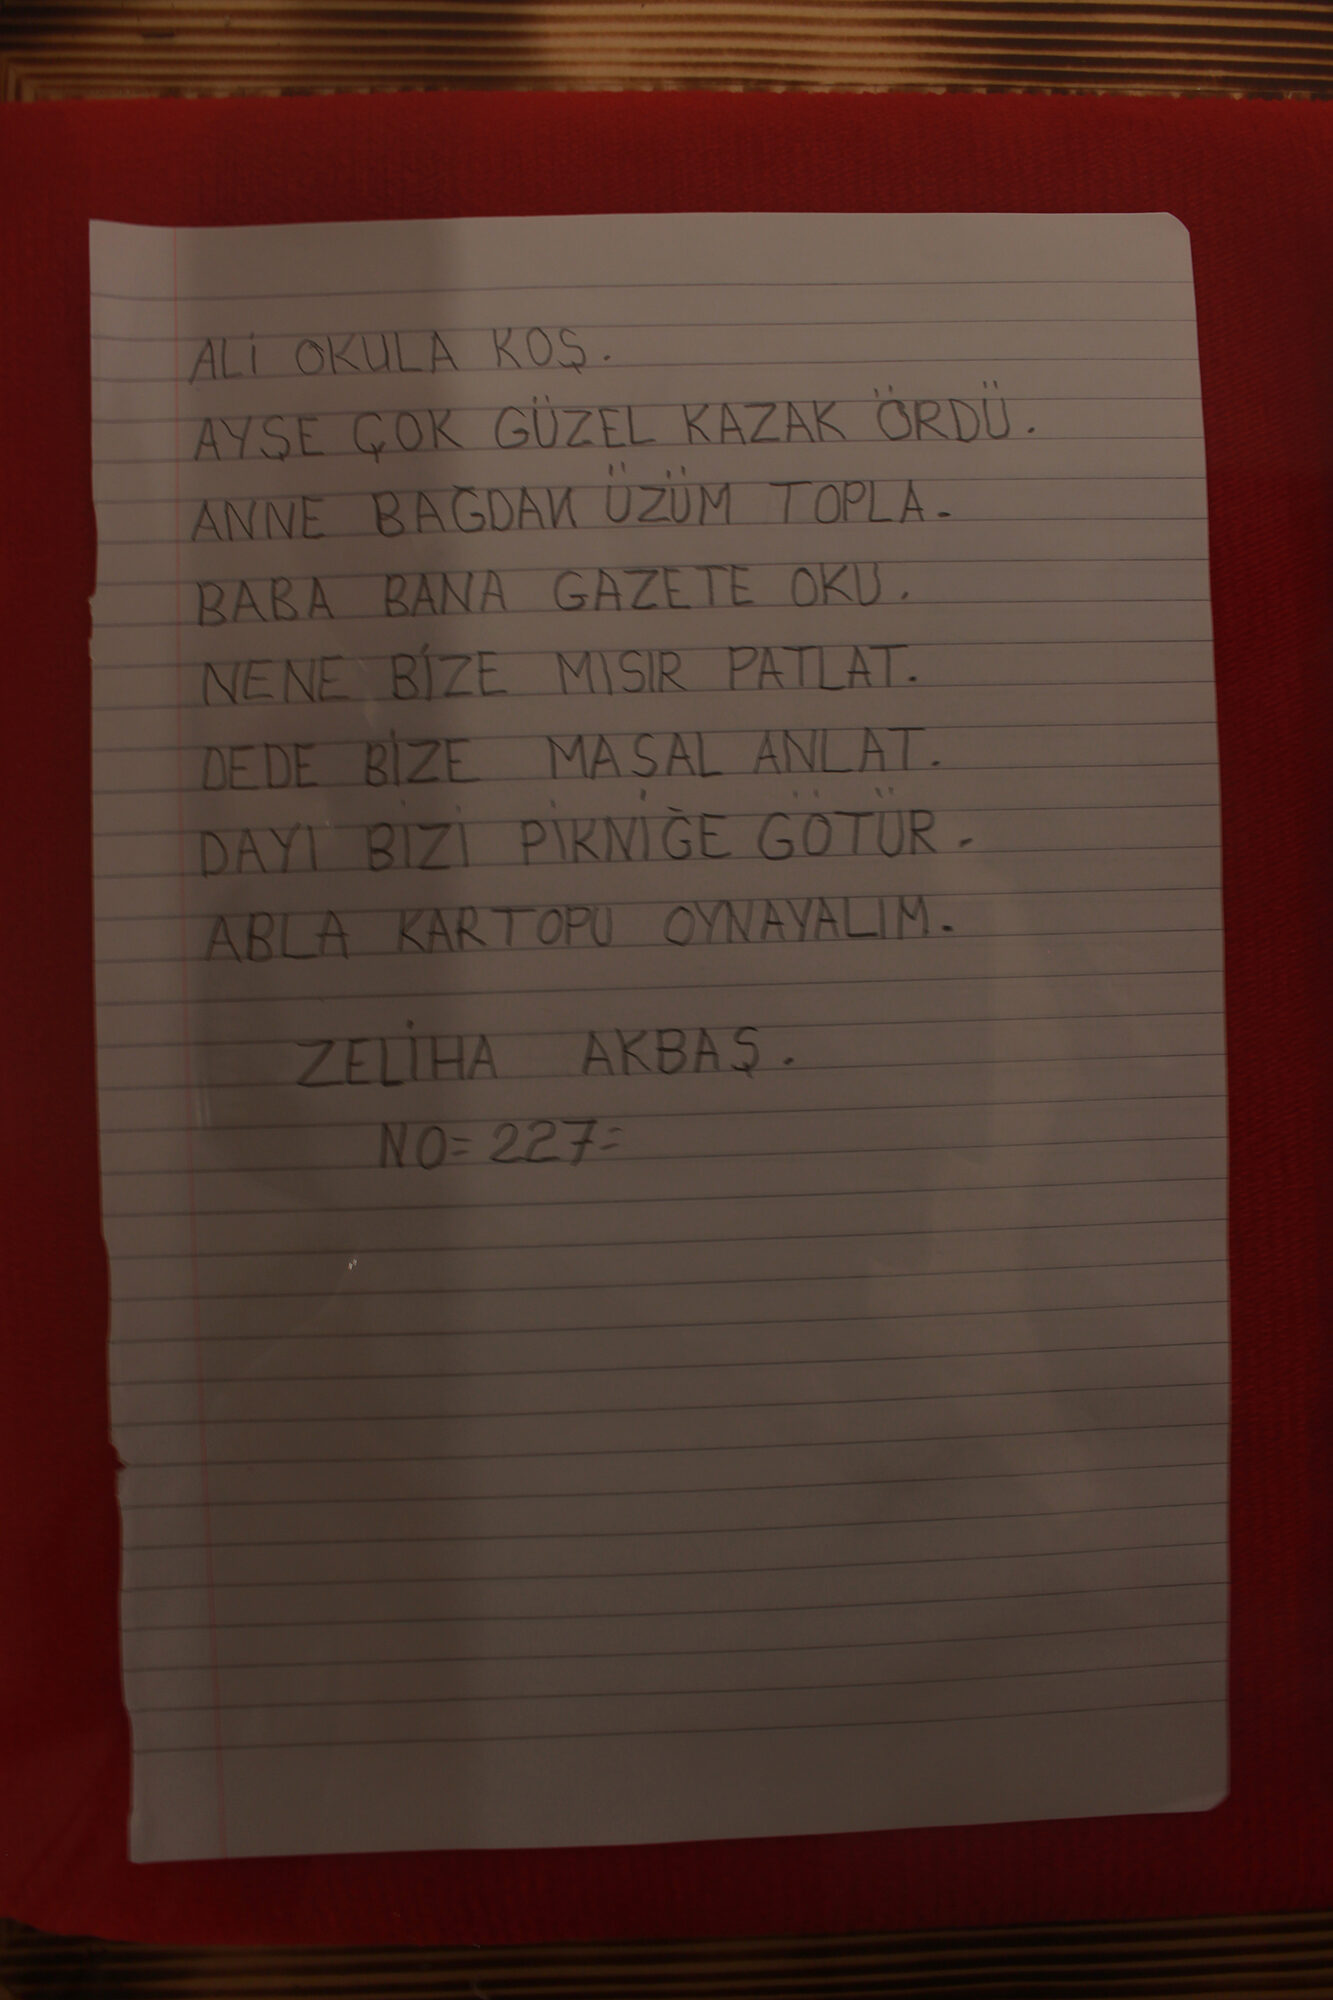 ALİ OKULA KOŞ.
AYŞE ÇOK GÜZEL KAZAK ÖRDÜ.
ANNE BAĞDAN ÜZÜM TOPLA.
BABA BANA GAZETE OKU.
NENE BİZE MISIR PATLAT.
DEDE BİZE MASAL ANLAT.
DAYI BİZİ PİKNİĞE GÖTÜR.
ABLA KARTOPU OYNAYALIM.
ZELİHA AKBAŞ.
NO=227=